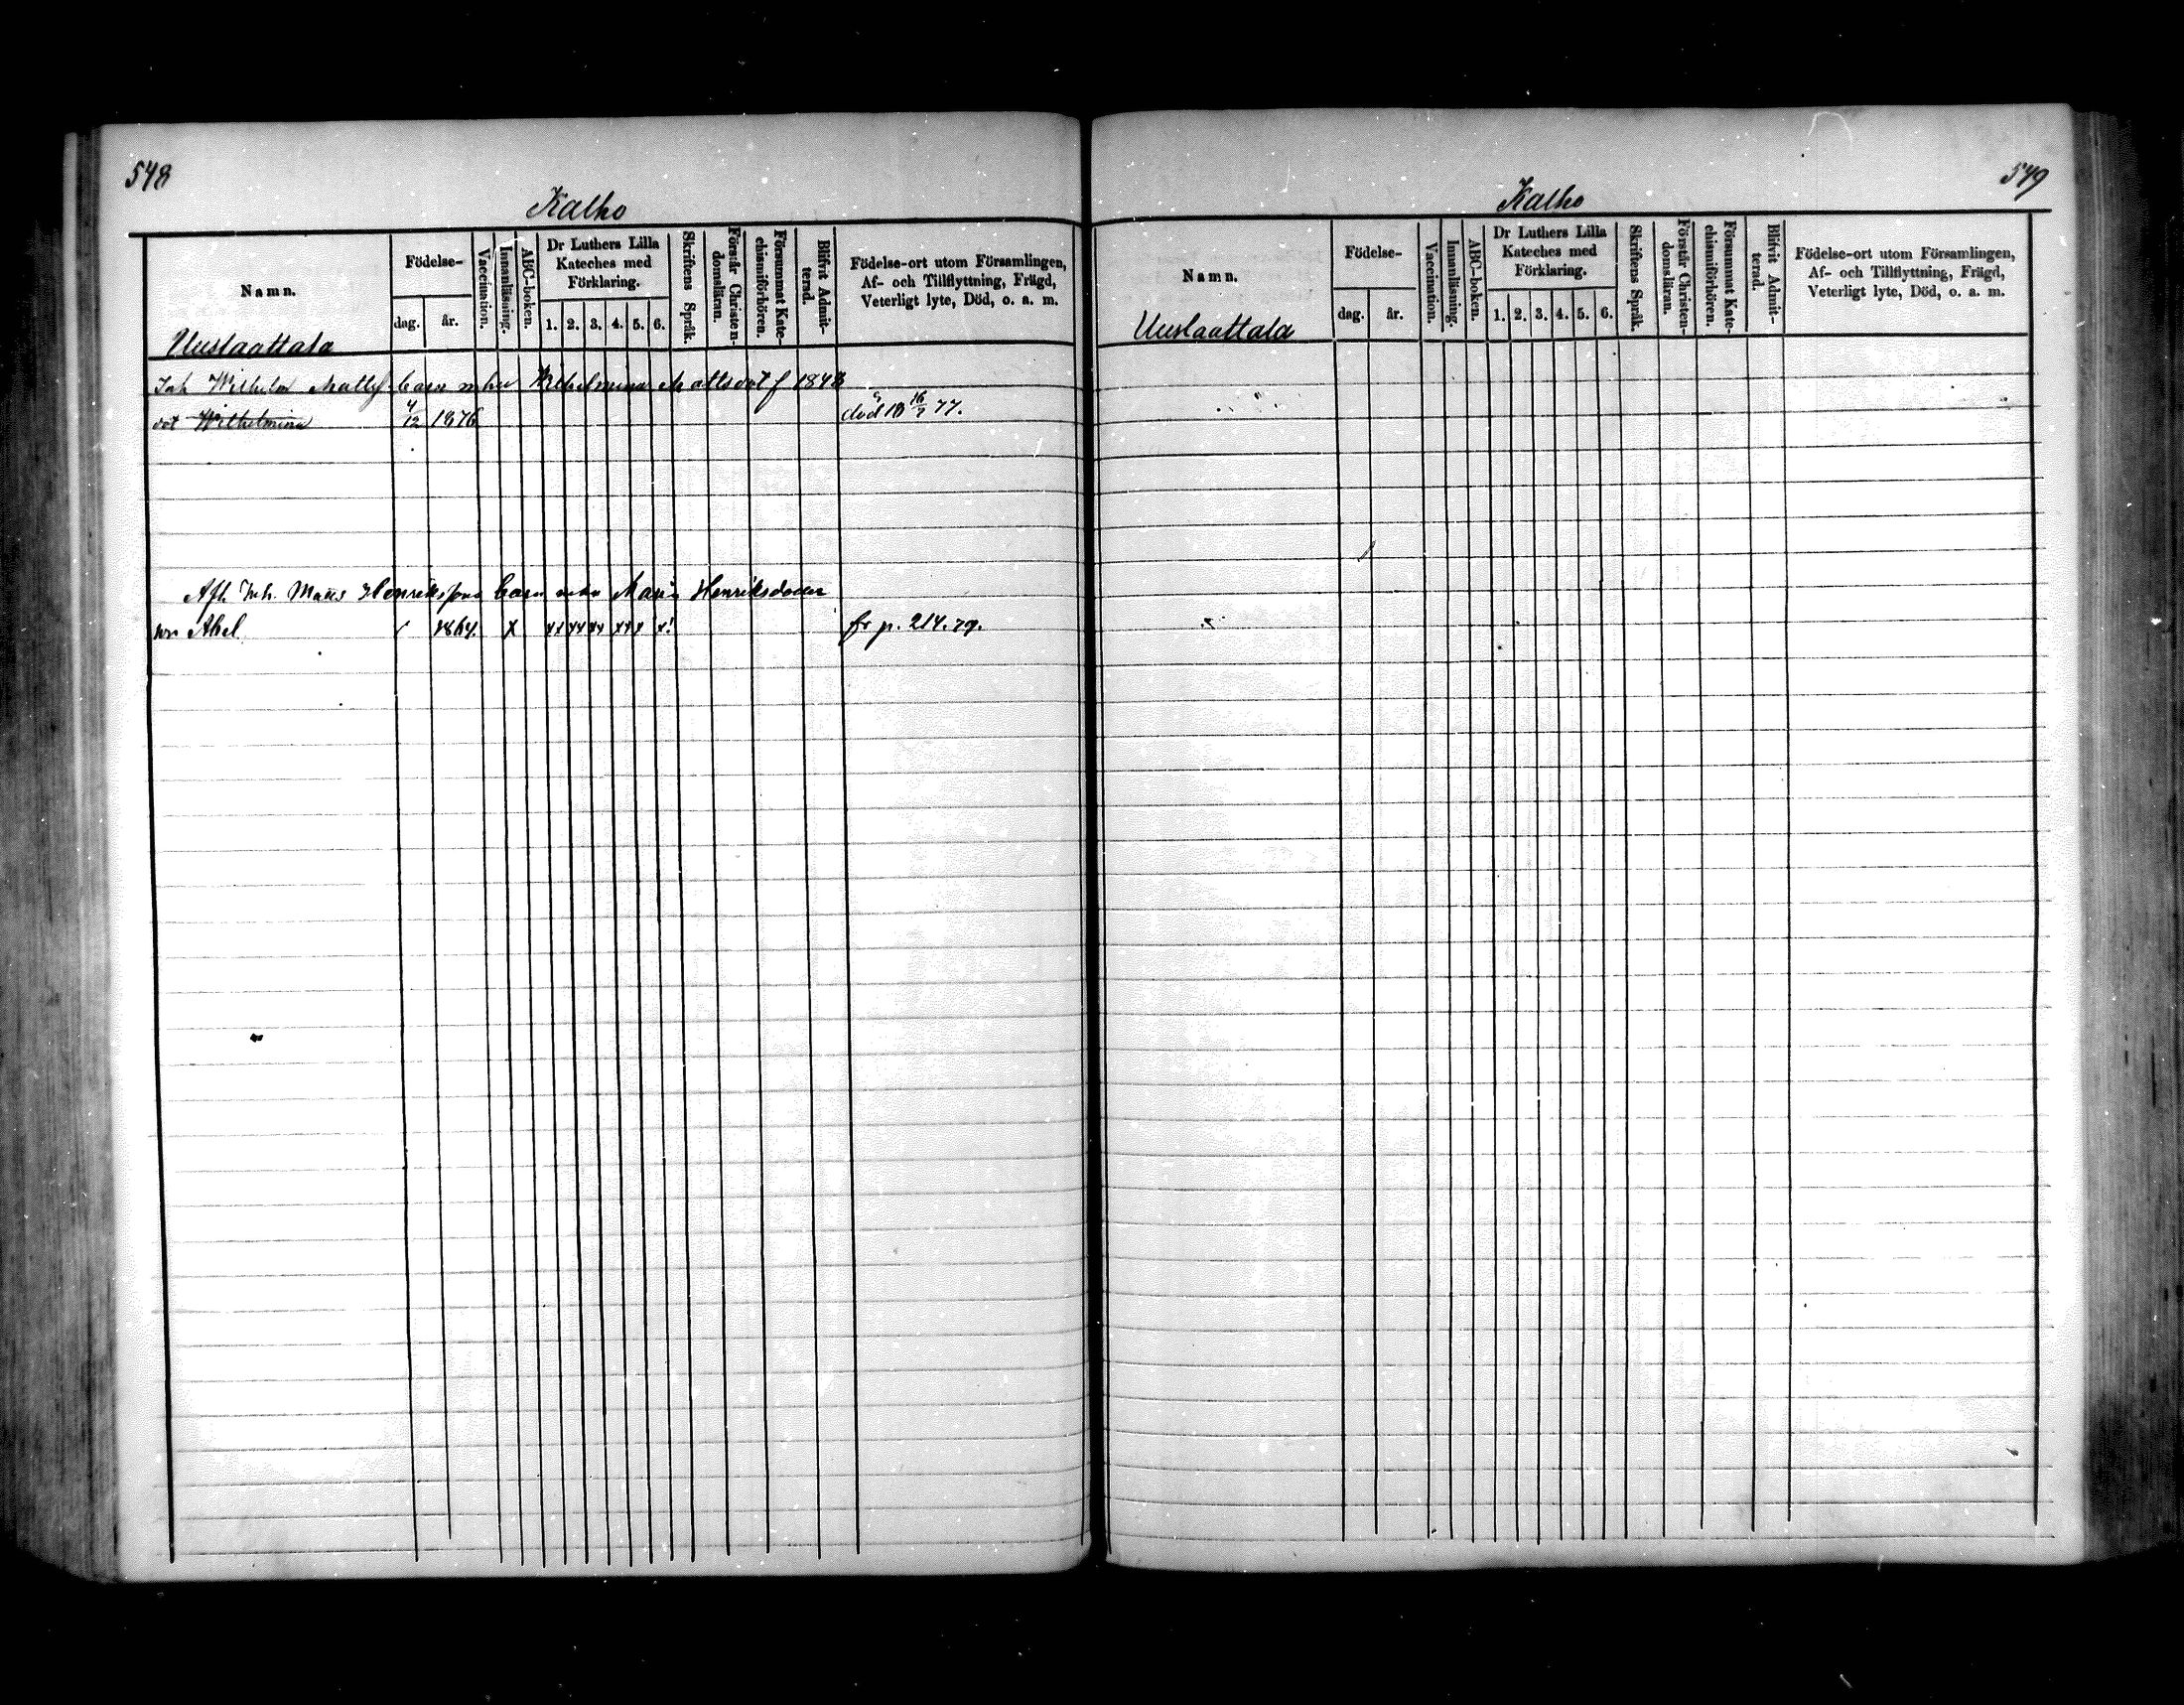 548
Kalho
Namn.
Födelse-
dag.
år.
Vaccination.
Innanläsning.
ABC-boken.
Dr Luthers Lilla
Kateches med
Förklaring.
1. 2. 3. 4. 5. 6.
Skriftens Språk.
Förstår Christen-
domsläran.
Försummat Kate-
chismiförhören.
Blifvit Admit-
terad.
Födelse-ort utom Församlingen,
Af- och Tillflyttning, Frägd,
Veterligt lyte, Död, o. a. m.
Uuslaattala
Inh Wilhelm Mattss barn m hu Wilhelmina Mattsdot f 1848
dot Wilhelmina 4/12 1876 död 18 16/7 77.
Afl. Inh. Matts Henrikssons barn m hu Maria Henriksdotter
son Abel 1864. x xx xx xx xxx x! fr p. 214. 79.
549
Kalho
Namn.
Födelse-
dag.
år.
Vaccination.
Innanläsning.
ABC-boken.
Dr Luthers Lilla
Kateches med
Förklaring.
1. 2. 3. 4. 5. 6.
Skriftens Språk.
Förstår Christen-
domsläran.
Försummat Kate-
chismiförhören.
Blifvit Admit-
terad.
Födelse-ort utom Församlingen,
Af- och Tillflyttning, Frägd,
Veterligt lyte, Död, o. a. m.
Uuslaattala